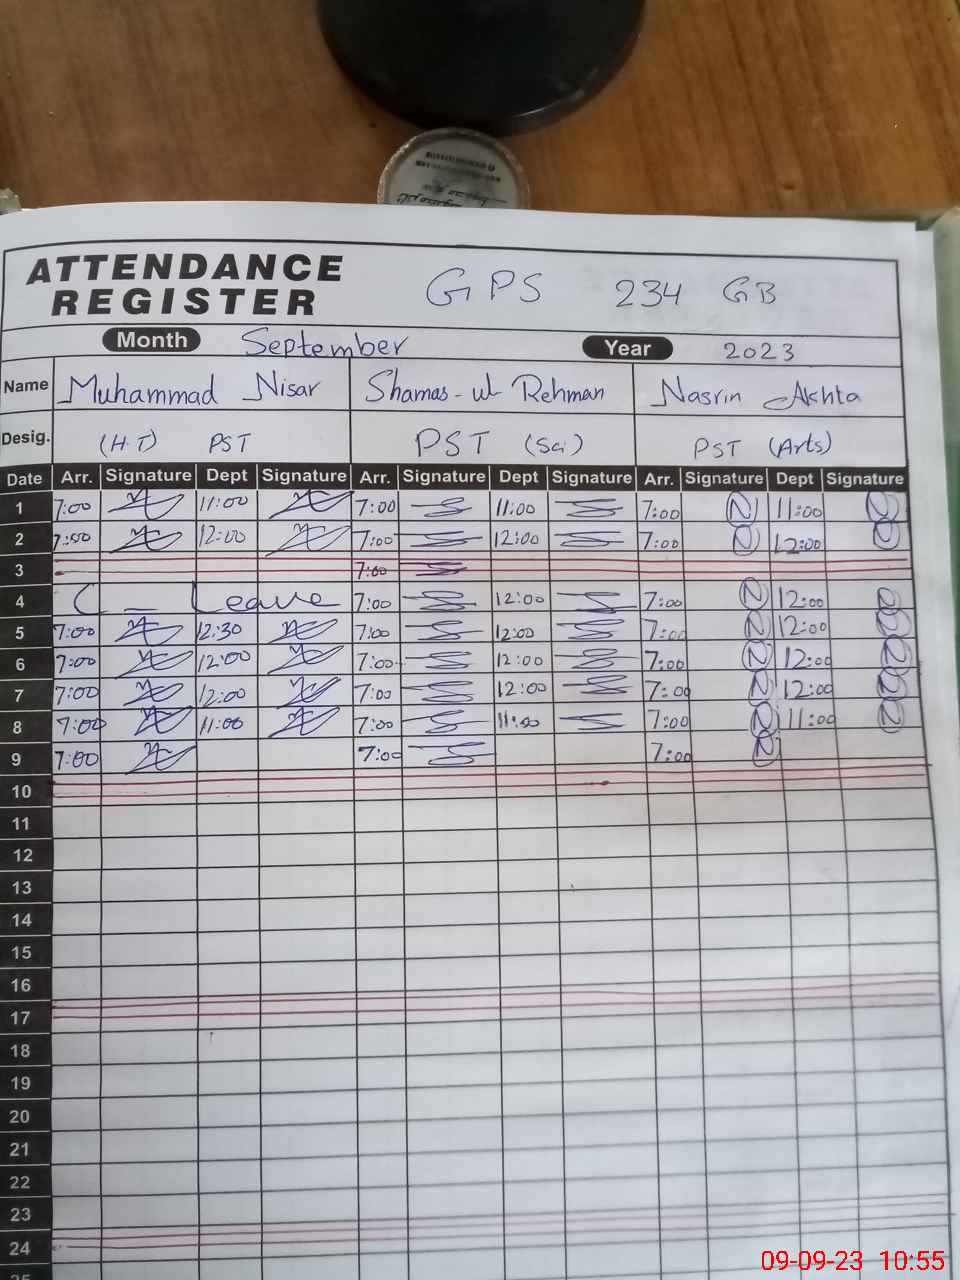 ATTENDANCE REGISTER GPS 234 GB
Month September Year 2023
Name Muhammad Nisar Shamas-ul Rehman Nasrin Akhta
Desig. (H.T) PST PST (Sci) PST (Arts)
Date Arr. Signature Dept Signature Arr. Signature Dept Signature Arr. Signature Dept Signature
1 7:00 11:00 7:00 11:00 7:00 11:00
2 7:00 12:00 7:00 12:00 7:00 12:00
3 7:00
4 C - Leave 7:00 12:00 7:00 12:00
5 7:00 12:30 7:00 12:00 7:00 12:00
6 7:00 12:00 7:00 12:00 7:00 12:00
7 7:00 12:00 7:00 12:00 7:00 12:00
8 7:00 11:00 7:00 11:00 7:00 11:00
9 7:00 7:00 7:00
10
11
12
13
14
15
16
17
18
19
20
21
22
23
24
09-09-23 10:55